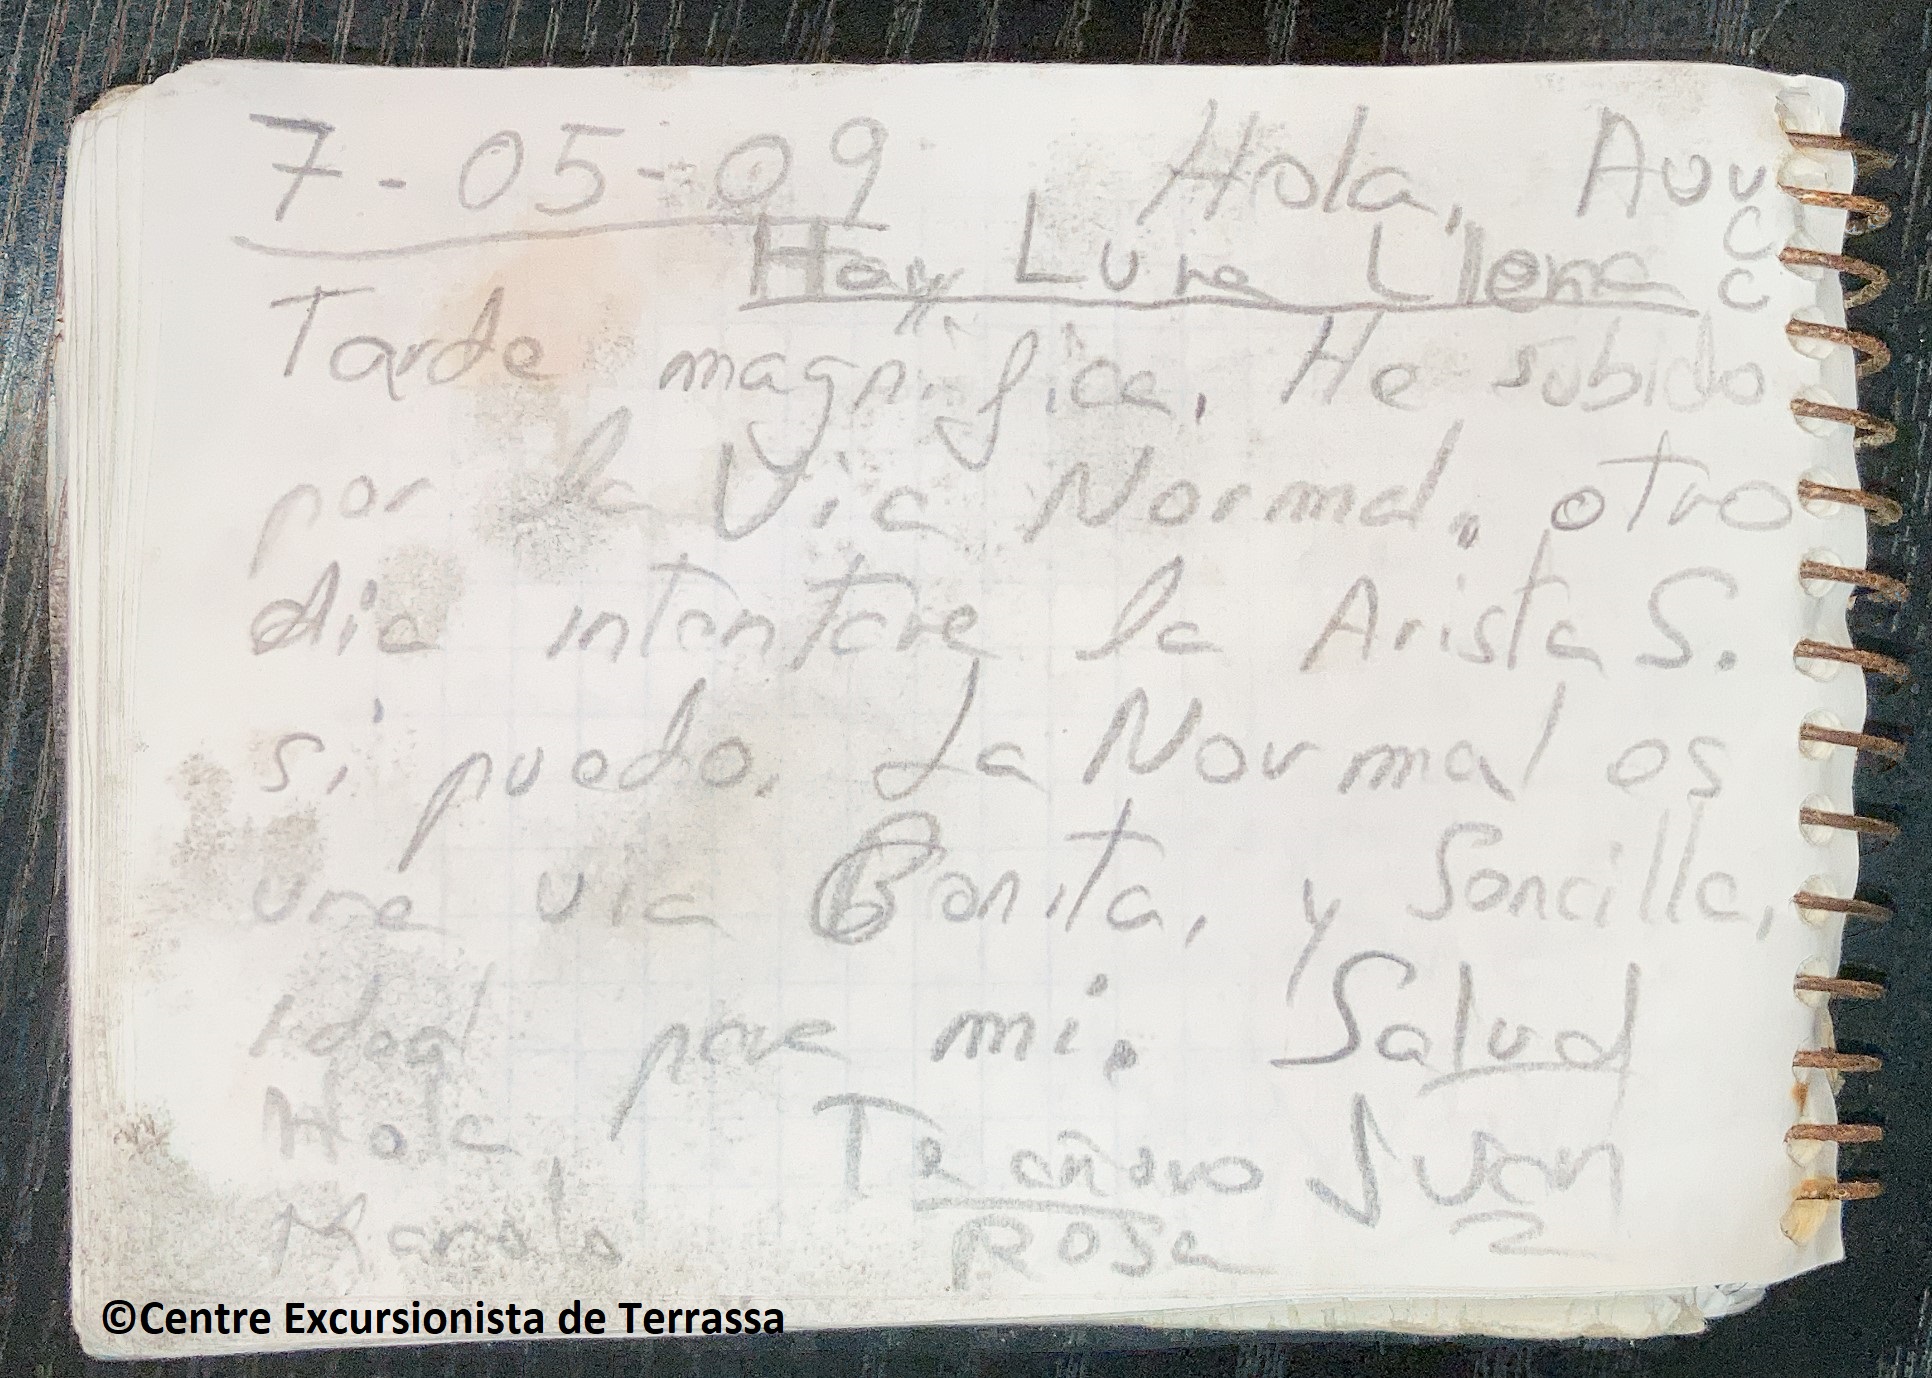 7-05-09 Hola, Auu
c
Hay Luna Llena c
Tarde magnifica, He subido
por la Via Normal, otro
dia intentare la Arista S.
si puedo, La Normal es
una via Bonita, y Sencilla,
ideal para mi. Salud
Hola, Te añoro Juan
Manolo Rosa
©Centre Excursionista de Terrassa